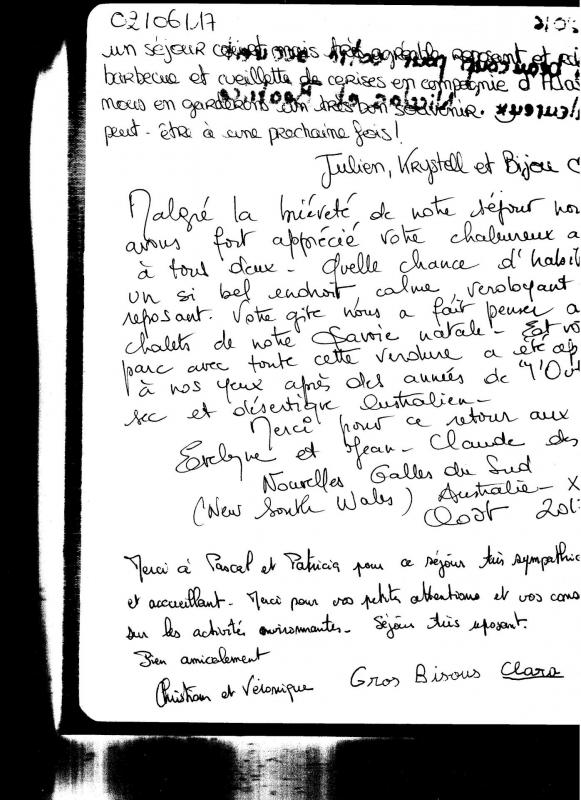 02/06/17
un séjour court mais très agréable reposant et
barbecue et cueillette de cerises en compagnie d'
nous en garderons un très bon souvenir.
peut-être à une prochaine fois!
Julien, Krystell et Bijou
Malgré la briéveté de notre séjour
avons fort apprécié votre chaleureux a
à tous deux - Quelle chance d'habit
un si bel endroit calme, verdoyant
reposant. Votre gite nous a fait penser a
chalets de notre Savoie natale -
parc avec toute cette verdure a été
à nos yeux après des années de "l'Out
sec et désertique australien -
Merci pour ce retour aux
Evelyne et Jean-Claude des
Nouvelles Galles du Sud
(New South Wales) Australie -
Août 201
Merci à Pascal et Patricia pour ce séjour très sympathi
et accueillant - Merci pour vos petites attentions et vos cons
sur les activités environnantes - Séjour très reposant.
Bien amicalement
Christian et Véronique Gros Bisous Clara